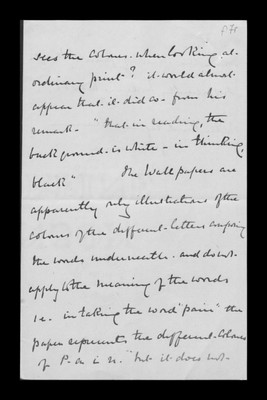 sees the colours when looking at
ordinary print? it would almost
appear that it did so - from his
remark - "that in reading, the
back ground is white - in thinking,
black" The Wall papers are
apparently only illustrations of the
colours of the different letters composing
the words underneath - and do not
apply to the meaning of the words
i.e. in taking the word "pain" the
paper represents the different colours
of P - a i n. but it does not